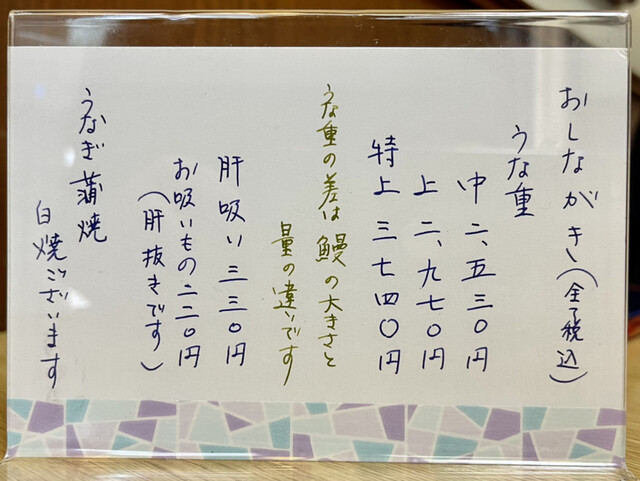 おしながき(全て税込)
うな重
中 二、五三〇円
上 二、九七〇円
特上 三七四〇円
うな重の差は鰻の大きさと
量の違いです
肝吸い 三三〇円
お吸いもの二二〇円
(肝抜きです)
うなぎ蒲焼
白焼ございます